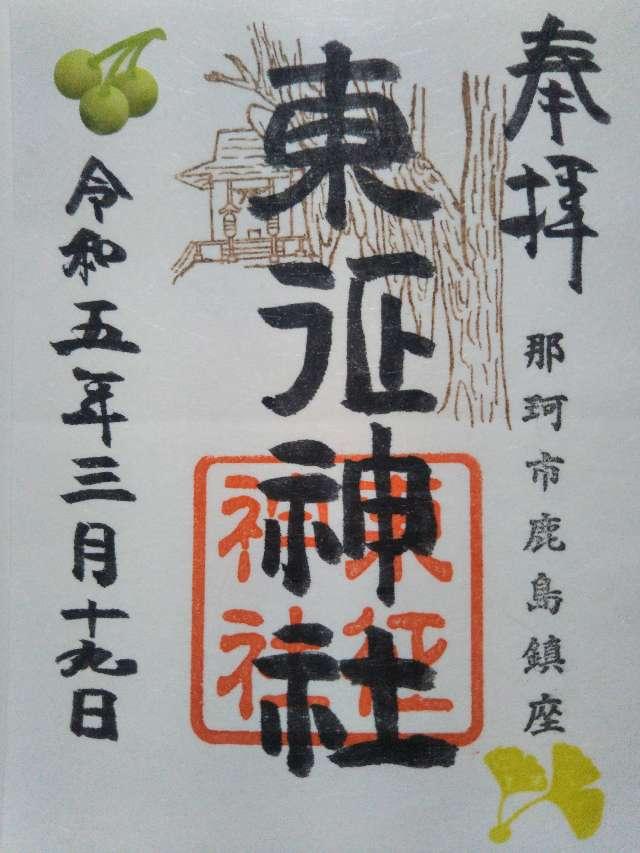 奉拝
那珂市鹿島鎮座
東征神社
東征神社
令和五年三月十九日